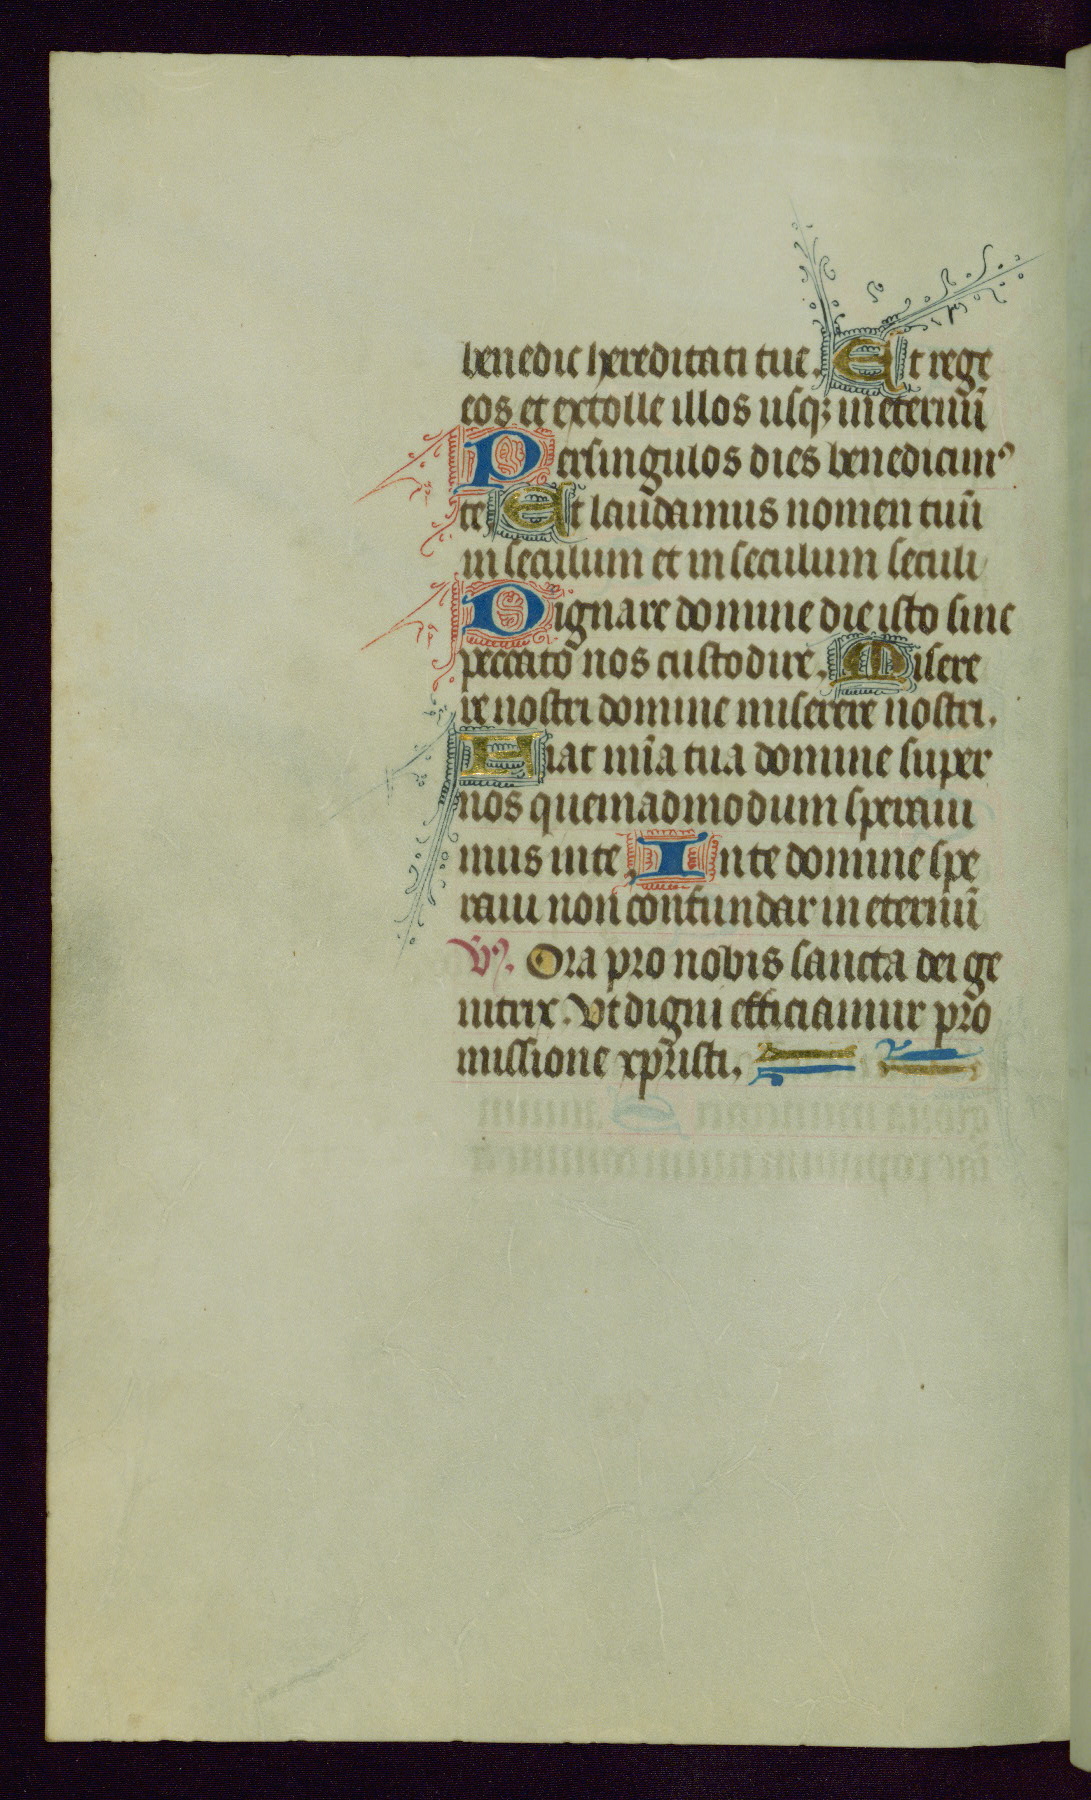 benedic hereditati tue. Et rege
eos et extolle illos usqꝫ in eternū
Per singulos dies benedicimꝰ
te Et laudamus nomen tuū
in seculum et in seculum seculi
Dignare domine die isto sine
peccato nos custodire. Misere
re nostri domine miserere nostri.
Fiat mīa tua domine super
nos quemadmodum speraui
mus in te. In te domine spe
raui non confundar in eternū
V̄. Ora pro nobis sancta dei ge
nitrix. Vt digni efficiamur pro
missione xp̄risti.